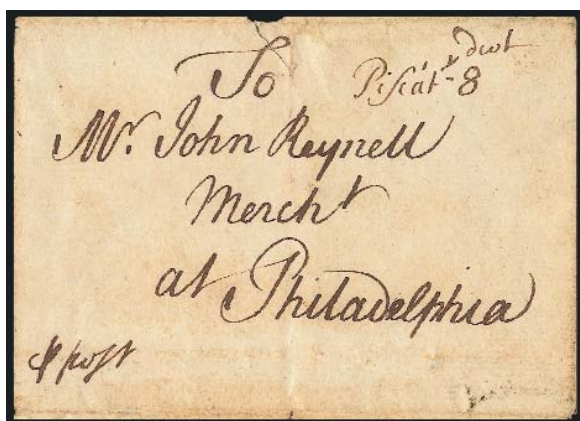 To
Piscat.y dwt 8
Mr. John Reynell
Mercht
at Philadelphia
⅌ post